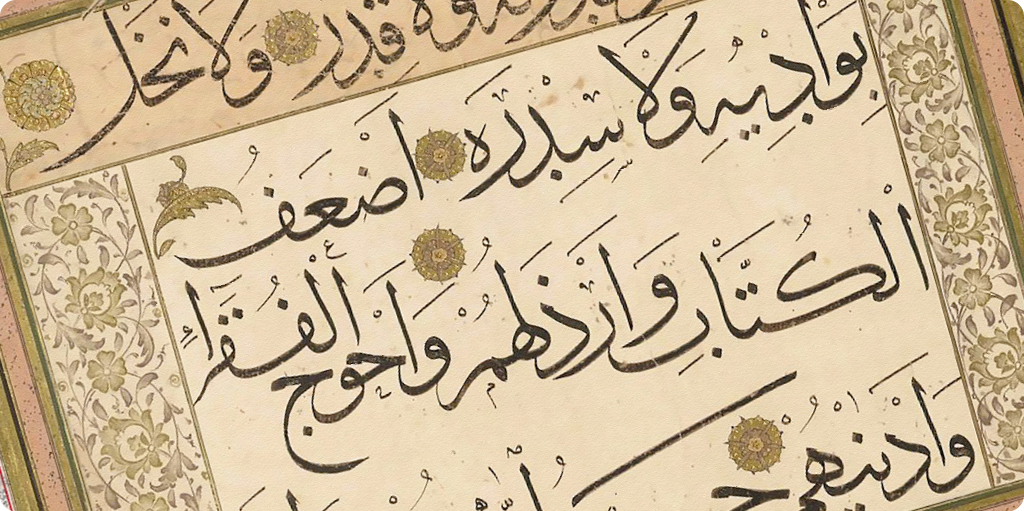 قدر ولا نخل
بواديه ولا سدره اضعف
الكتاب وارذلهم واحوج الفقراء
وادنيهم